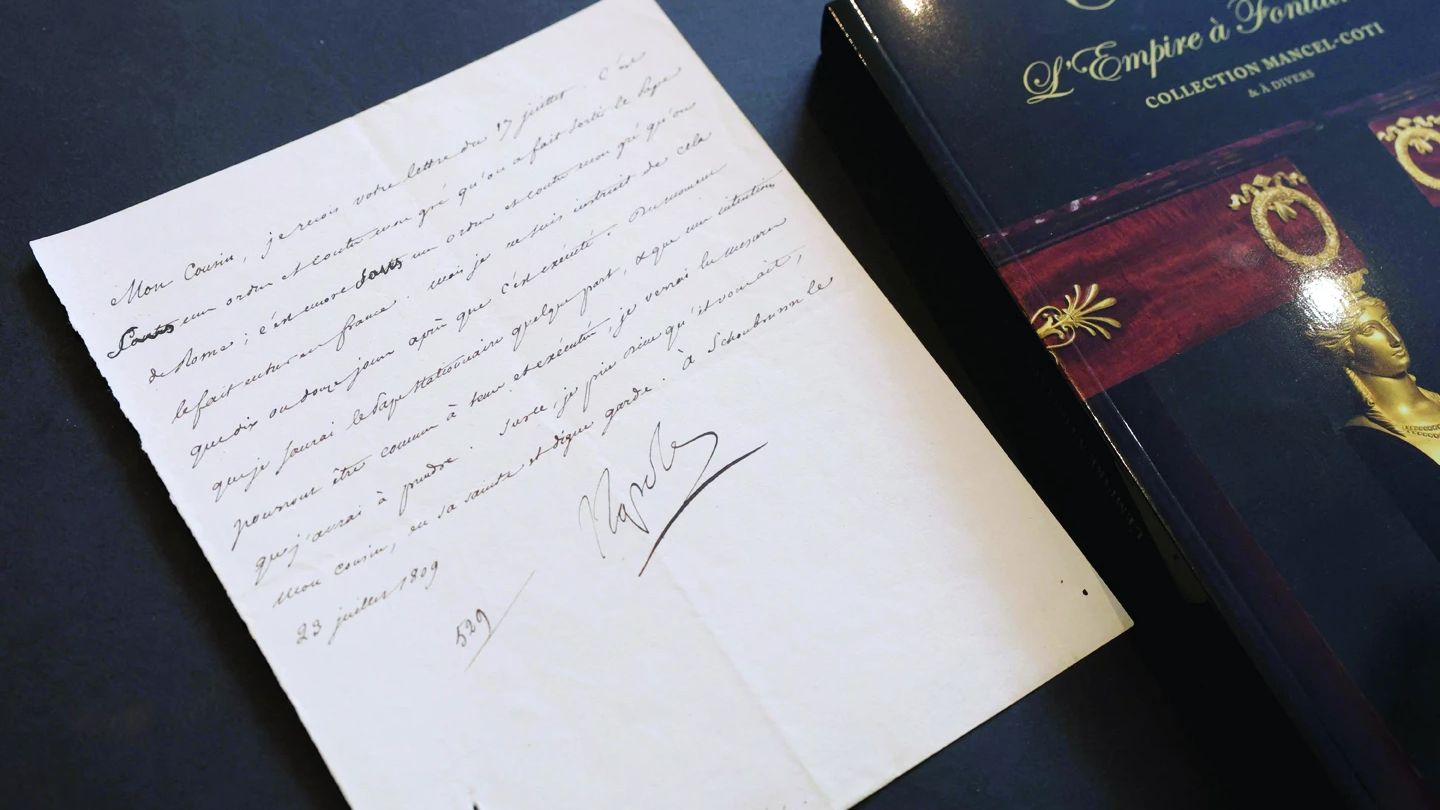 Mon Cousin, je reçois votre lettre du 17 juillet. C'est
Sans mon ordre et contre mon gré qu'on a fait sortir le pape
de Rome; c'est encore sans mon ordre et contre mon gré qu'on
le fait entrer en france. mais je ne suis instruit de cela
que dix ou douze jours après que c'est exécuté. Du moment
que je saurai le Pape stationnaire quelque part, & que mes intentions
pourront être connues à tems et exécutées, je verrai les mesures
que j'aurai à prendre. Surce, je prie Dieu qu'il vous ait,
mon cousin, en sa sainte et digne garde. à Schoenbrunn le
23 juillet 1809
Napole
529
L'Empire à Fontai
COLLECTION MANCEL-COTI
& À DIVERS